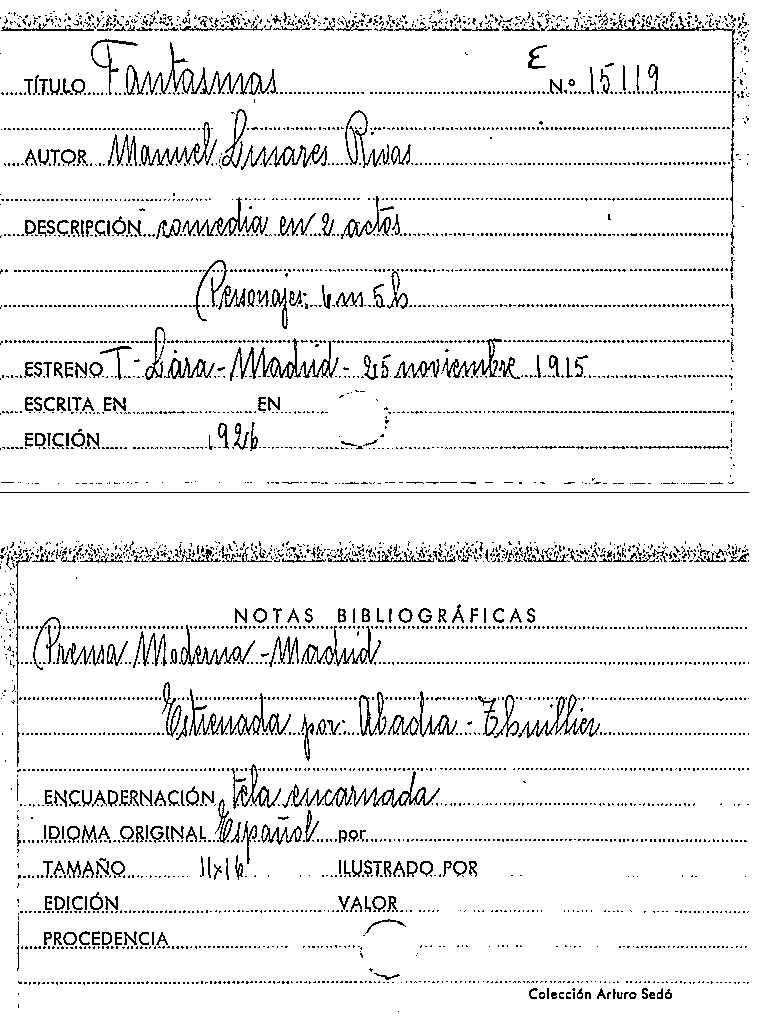 E
TÍTULO Fantasmas N.º 15119
AUTOR Manuel Linares Rivas
DESCRIPCIÓN comedia en 2 actos
Personajes: 6 m 5 h
ESTRENO T- Lara - Madrid - 25 noviembre 1915
ESCRITA EN EN
EDICIÓN 1926
NOTAS BIBLIOGRÁFICAS
Prensa Moderna - Madrid
Estrenada por: Abadia - Thuillier
ENCUADERNACIÓN tela encarnada
IDIOMA ORIGINAL Español por
TAMAÑO 11x16 ILUSTRADO POR
EDICIÓN VALOR
PROCEDENCIA
Colección Arturo Sedó